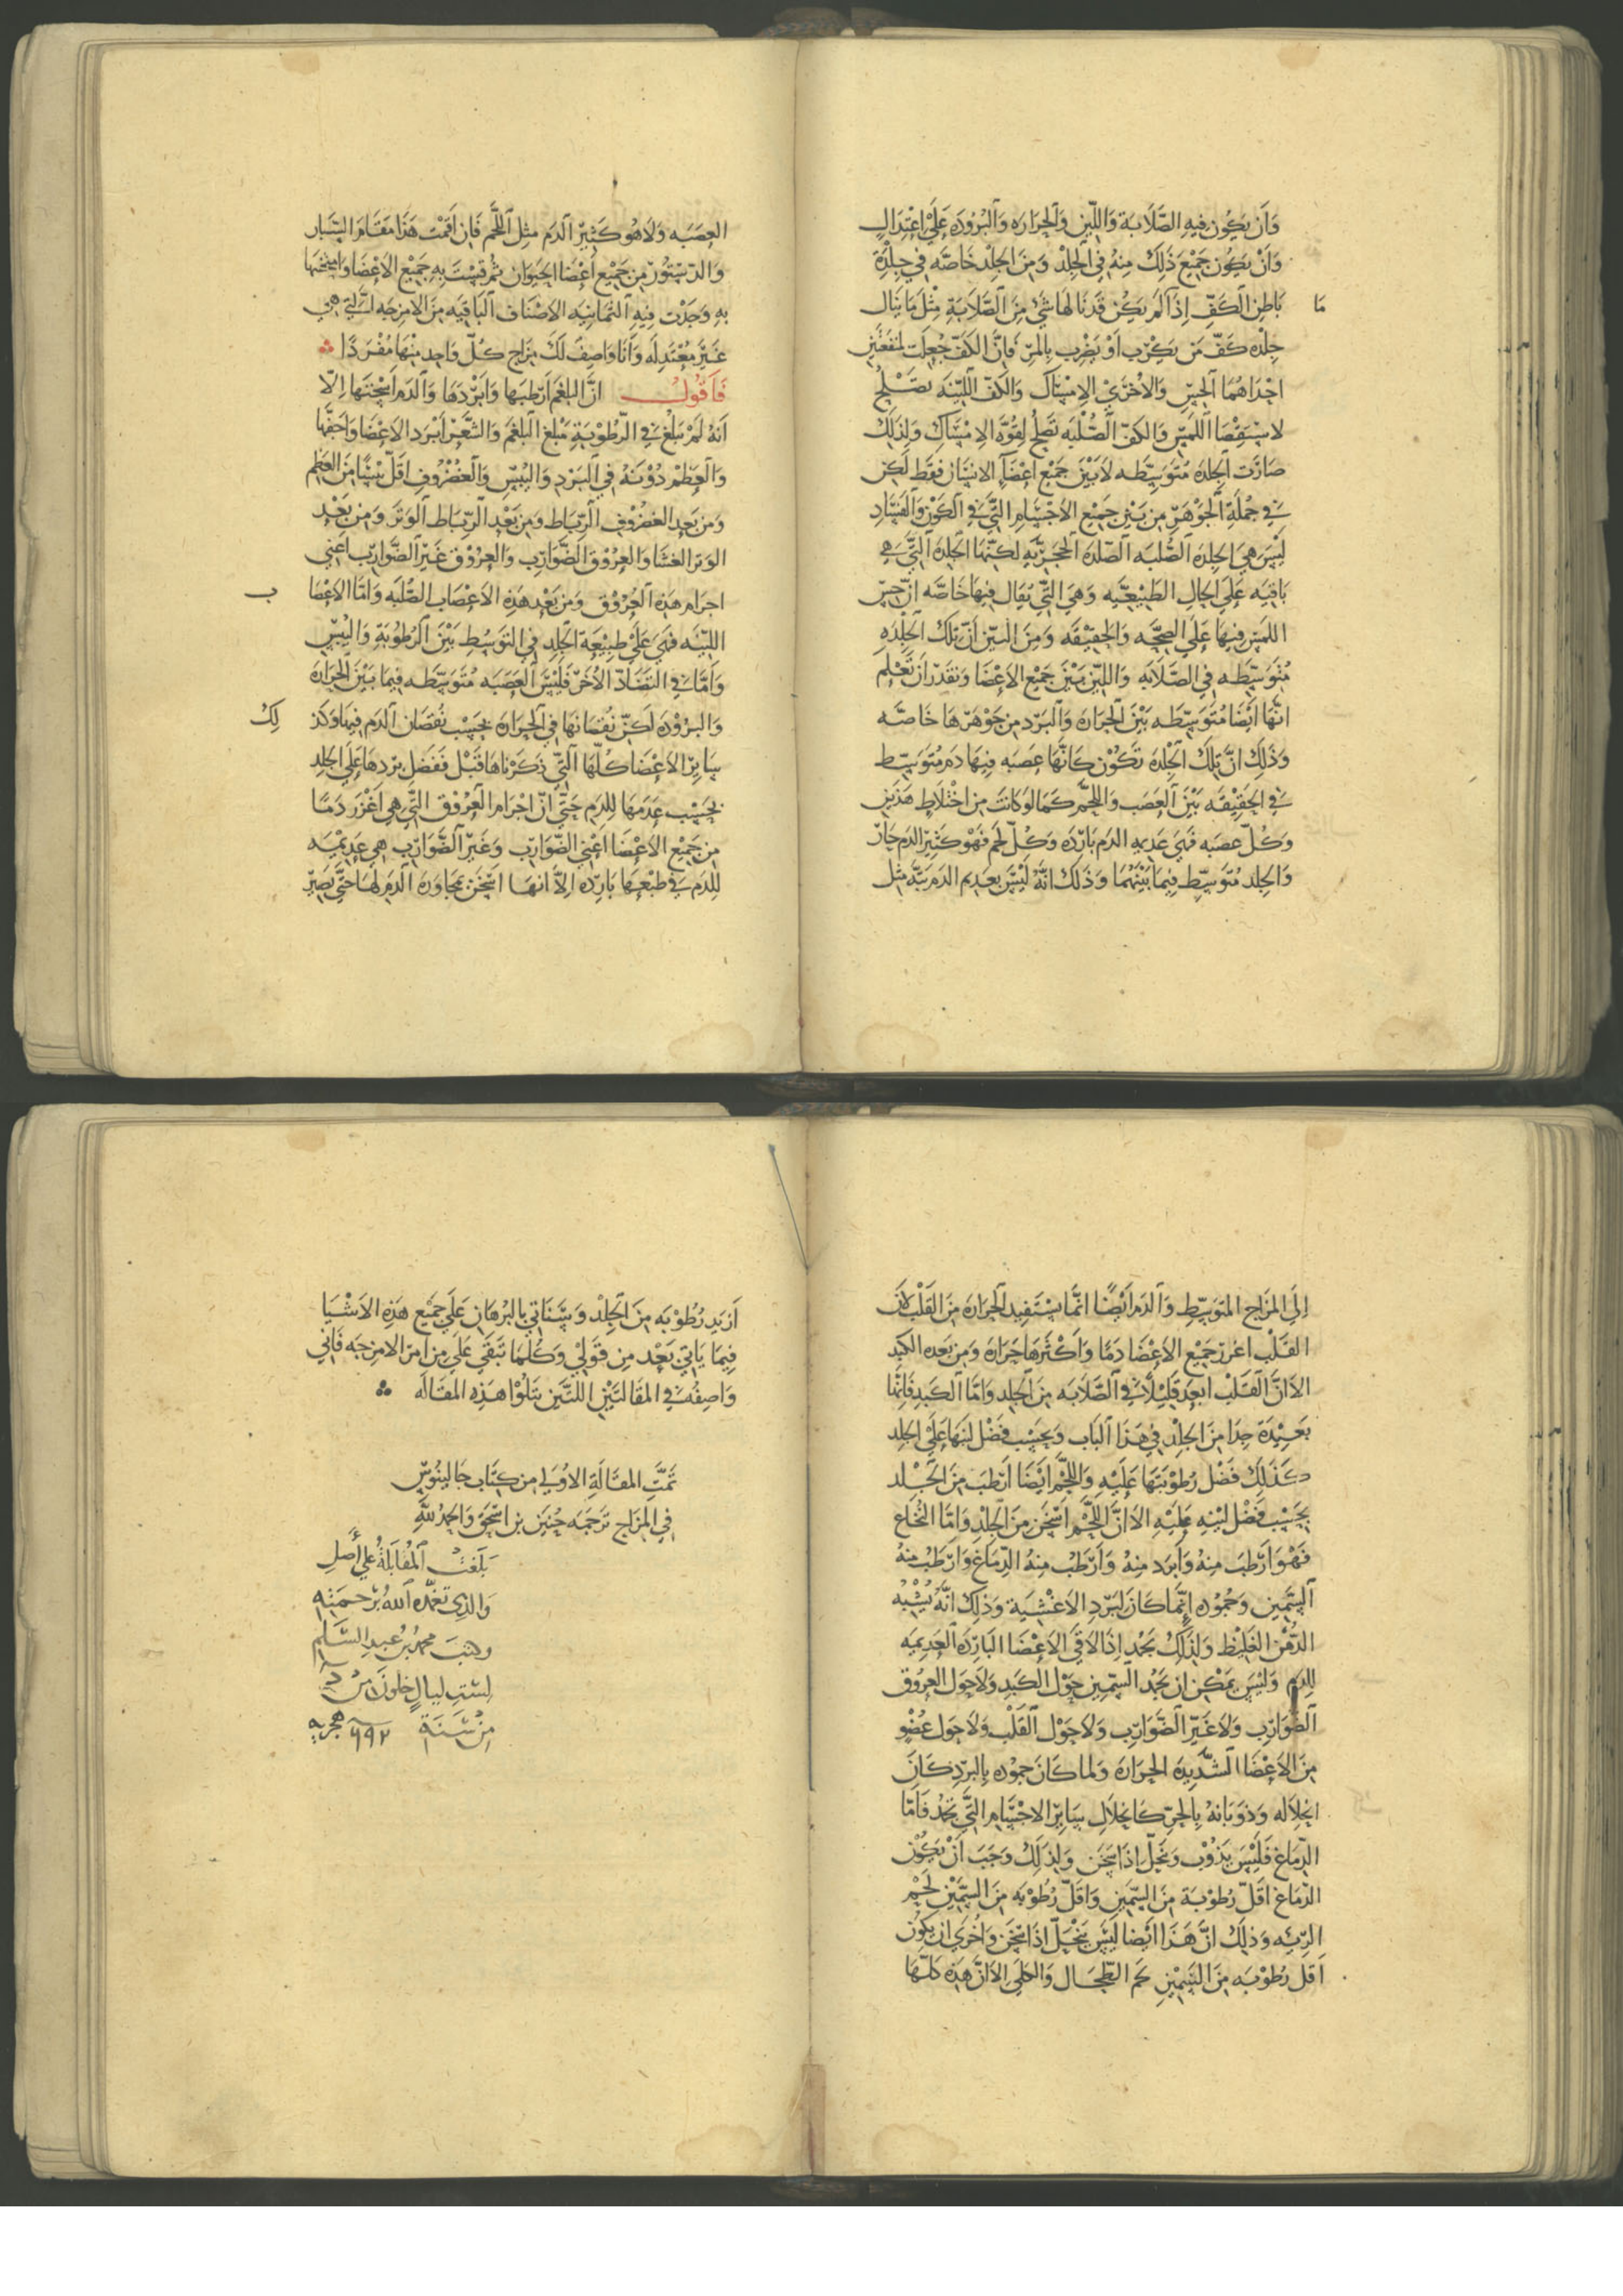 وَأَن يَكُون فيهِ الصَّلَابَة وَاللّين وَالحَرَارَه وَالبُرُودَه عَلَى اِعْتِدَالٍ
وَأَنْ يَكُون جَمْيْعَ ذَلِكَ مِنهُ فِي الجِلْدْ وَمِنَ الجِلدْ خَاصَّه في جِلْدَةِ
بَاطِنِ الكَفِّ إِذَا لَمْ يَكُن قَدْ نَالَهَا شَيْء مِنَ الصَّلَابَةِ مِثْلَ مَا يَنَال
مَا
جِلْدَه كَفّ مَن يَكْرُب أَوْ يَضْرِب بِالمَرّ فَإِنّ الكَفّ جُعِلَت لمَنفَعَتَين
احْدَاهُمَا الحِسّ وَالأُخْرَيْ الاِمْسَاك وَالكَفّ اللّيّنَه تَصْلُحُ
لاسْتِقصَا اللمسّ وَالكَفّ الصُّلْبَه تَصْلُحُ لِقُوَّه الاِمْسَاك وَلِذَلِكَ
صَارَت الجِلدَه مُتَوَسِّطَه لَا بَيْنَ جَمْيْع اعْضَآ الانسَان فَقَط لَكِن
في جُمْلَةِ الجَوْهَرْ مِن بَيْنِ جَمِيْع الأَجْسَامِ التّي في الكَوْن وَالفَسَاد
لَيْسَ هِيَ الجِلدَه الصُّلبَه الصّلدَه الحَجَرِيّه لكِنّهَا الجِلدَه التّي هي
بَاقيَه عَلَى الحَالِ الطَبِيْعيّه وَهِيَ التّي يُقَال فِيهَا خَاصَّه انّ حِسّ
اللمَسِ فيهَا عَلَى الصِحَّه وَالحَقِيْقَه وَمِنَ البَيّن أَنّ تِلكَ الجِلْدَه
مُتَوَسِّطَه في الصَّلَابَه وَاللّين بَيْنَ جَمِيْع الأَعْضَا وَتَقدِر أَن تَعْلَم
انّهَا ايْضَا مُتَوَسِّطَه بَيْنَ الحَرَارَه وَالبَرَد مِن جَوْهَرهَا خَاصَّه
وَذَلِكَ انّ تِلكَ الجِلْدَه تَكُوْن كَانّهَا عَصَبَه فِيهَا دَم مُتَوَسِّط
في الحَقِيْقَه بَيْنَ العَصَب وَاللّحْم كَمَا لَو كَانَت مِن اخْتِلَاطِ هَذَين
وَكُلّ عَصَبَه فَهيَ عَديمه الدَم بَارِدَه وَكُلّ لَحم فَهْوَ كَثِيْر الدَم حَارّ
وَالجِلد مُتوَسِّط فِيمَا بَيْنَهُمَا وَذَلكَ انّهُ لَيْسَ بعَدِيم الدَم بَتّه مثل
العَصَبَه وَلَا هُو كَثيْرِ الدَم مثِلِ اللّحْم فَإِن اقَمْتَ هَذَا مَقَام السّبَار
وَالدّسْتُوْر مِن جَمِيْع أَعْضَا الحَيَوَان ثُمّ قِسْتَ بِهِ جَمِيْع الأَعْضَا وَامتَحَنتهَا
بهِ وَجَدْت فِيهِ الثمَانيه الاصْنَاف البَاقيَه مِنَ الامْزجَه التي هي
غَيْر مُعْتَدِلَه وَأَنَا وَاصِفٌ لَكَ مِزَاج كُلّ وَاحدٍ مِنْهَا مُفْرَدًا
فَأَقُولُ انّ البَلغَم أَرْطَبهَا وَابْرَدهَا وَالدَم أَسْخَنهَا الّا
انّهُ لَمْ يَبْلُغ في الرُّطُوْبَةِ مَبْلَغَ البَلْغَم وَالشَّعَر أَبْرَد الأَعْضَا وَاجَفّهَا
وَالعَظْم دُوْنَهُ في البَرْد وَاليُبْسِ وَالغُضْرُوف اقَلّ يُبْسًا مِنَ العَظم
وَمِن بَعِد الغضْرُوْفِ الرّبَاط وَمِن بَعْدِ الرّبَاط الوَتَر وَمِن بَعْدِ
الوَتر الغِشَا وَالعُرُوْق الضَّوَارِب وَالعِرُوْق غَيْر الضّوَارِب اعْني
اجرَام هَذِه العُرُوْق وَمِن بَعْدِ هَذِه الأَعْصَاب الصُّلبَه وَامَّا الأَعْصَا
ب
الليّنَه فَهيَ عَلَى طبِيْعَة الجِلد في التَوَسُّطِ بَيْنَ الرُّطُوْبَةِ وَاليُبْسِ
وَامَّا في التضَادّ الأُخَرّ فَلَيْسَ العَصَبَه مُتَوَسِّطَه فِيمَا بَيْنَ الحَرَارَه
وَالبرُوْدَه لَكِنّ نُقصَانهَا في الحَرَارَه بحَسَبِ نُقصَان الدَم فِيهَا وَكَذ
لِكَ
سَايِر الأَعْضَا كُلّهَا التّي ذَكَرْنَاهَا قَبْل فَفَضْل بَردهَا عَلَى الجِلدِ
بحَسَب عَدَمهَا للدَم حَتّي انّ اجْرَام العُرُوْق التّي هِي أَغْزَر دَمًا
مِن جَمِيْع الأَعْضَا اعْنِي الضّوَارب وَغَيْر الضَّوَارِب هِي عَدِيْمه
للدَم في طَبْعِهَا بَارِدَه الّا انهَا اسْتَخَنَت بمُجَاوَرَه الدَم لهَا حَتّى تَصِيْر
إِلَى المزَاج المتَوَسِّطِ وَالدَم أَيْضًا انّمَا يَسْتَفِيد الحَرَارَه مِنَ القَلْب لأَن
القَلْب اغْزر جَمِيْع الأَعْضَا دَمًا وَاكْثَرهَا حَرَارَه وَمِن بَعْده الكَبِد
الا انّ القَلبْ ابعَد قَليْلًا في الصَّلَابَه مِنَ الجِلد وَامَّا الكَبد فَإِنّهَا
بَعِيْدَة جِدًا مِنَ الجِلْدِ في هَذَا البَاب وَبحَسَب فَضْل لينهَا عَلَى الجِلد
كَذَلِكَ فَضْل رُطُوْبَتهَا عَلَيْهِ وَاللّحْم أَيْضًا أَرْطَب مِنَ الجِلْدِ
بحَسَبِ فَضْل لينهِ عَلَيْهِ الا انّ اللّحْم أَسْخَن مِنَ الجِلْدِ وَامَّا النُخَاع
فَهْوَ أَرْطَبَ مِنهُ وَأَبرَد مِنهُ وَأَرْطَبُ مِنهُ الدّمَاغ وَارطَبُ منهُ
السّمِين وَجُمُوْده إِنّمَا كَانَ لبَرْدِ الاغْشِيَة وَذلِكَ انّه يُشْبِهُ
الدُّهْن الغَليْظ وَلِذَلِكَ يَجْمُد إِذَا لَاقَى الأَعْضَا البَارِدَه العَدِيمَه
للدَم وَلَيْسَ يُمْكِن أَن يَجمُد السّمين حَوْل الكَبِدِ وَلَا حَوْلَ العُرُوْق
الضّوَارِبِ وَلَا غَيْر الضَّوَارِب وَلَا حَوْل القَلْب وَلَا حَوْل عُضْوٍ
مِنَ الأَعْضَا الشَّدِيدَة الحَرَارَه وَلمَا كَانَ جمُوْده بِالبَرْدِ كَانَ
انحِلَاله وَذوَبَانهُ بِالحَرّ كَانحِلَالِ سَايِر الاجْسَامِ التّي تَجْمُد فَامّا
الدّمَاغ فَلَيْسَ يَذُوْب وَيَنحَلّ إِذَا سَخَن وَلِذَلِكَ وَجَبَ أَنْ يَكُوْنَ
الدّمَاغ اقَلّ رُطُوْبَة مِنَ السّمِين وَاقَلّ رُطُوْبَه مِنَ السّمِين لَحْم
الرّئِه وَذلِكَ انّ هَذَا أَيْضًا لَيْسَ يَنْحَلّ اذَا سَخَن وَأَحْرَي ان يَكُوْن
اقَلّ رُطُوْبَه مِنَ السّمِيْن لَحم الطِّحَال وَالكُلَى الا انّ هَذِه كُلّهَا
أَزيَد رُطُوْبَه مِنَ الجِلْدْ وَسَنَاتي بِالبُرهَان عَلَى جَمِيْع هَذِه الأَشْيَا
فِيمَا يَاتي بَعْد مِن قَوْلي وَكُلّمَا تَبَقّي عَلَيّ مِن امر الامزجَه فَإِني
وَاصِفُهُ في المَقَالتَيْن اللتَيْن يَتلُوْا هَذِه المقَالَه
تَمَّتِ المقَالَة الأُوْلَى مِن كِتَاب جَالينُوسّ
في المزَاج تَرجَمَه حُنَيْن بن اسْحَقَ وَالحَمدُ للهِ
بَلَغَتْ المُقَابَلَةُ عَلَى أَصْلِ
وَالدِي تَغَمّدَه اللهُ بِرَحْمَتِهِ
وكَتَبَ محمدُ بنُ عَبدِ السَّلَم
لِستِ ليالٍ خلونَ مِنْ
مِنْ سَنَةِ ٦٩٢ هجريه